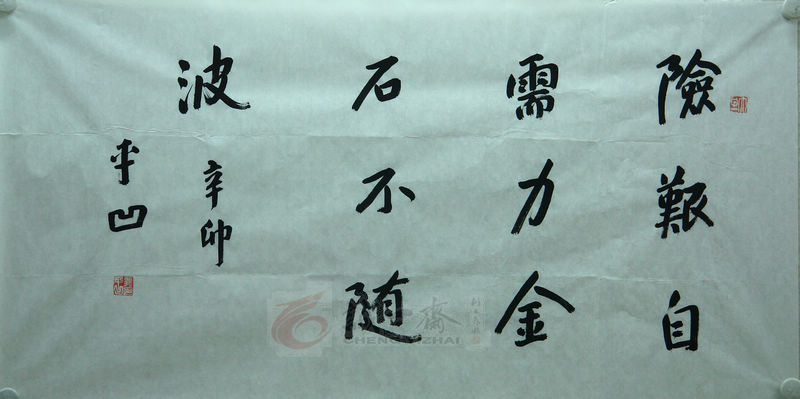 險艱自
需力金
石不随
波
辛卯
平凹
CHENGZHAI